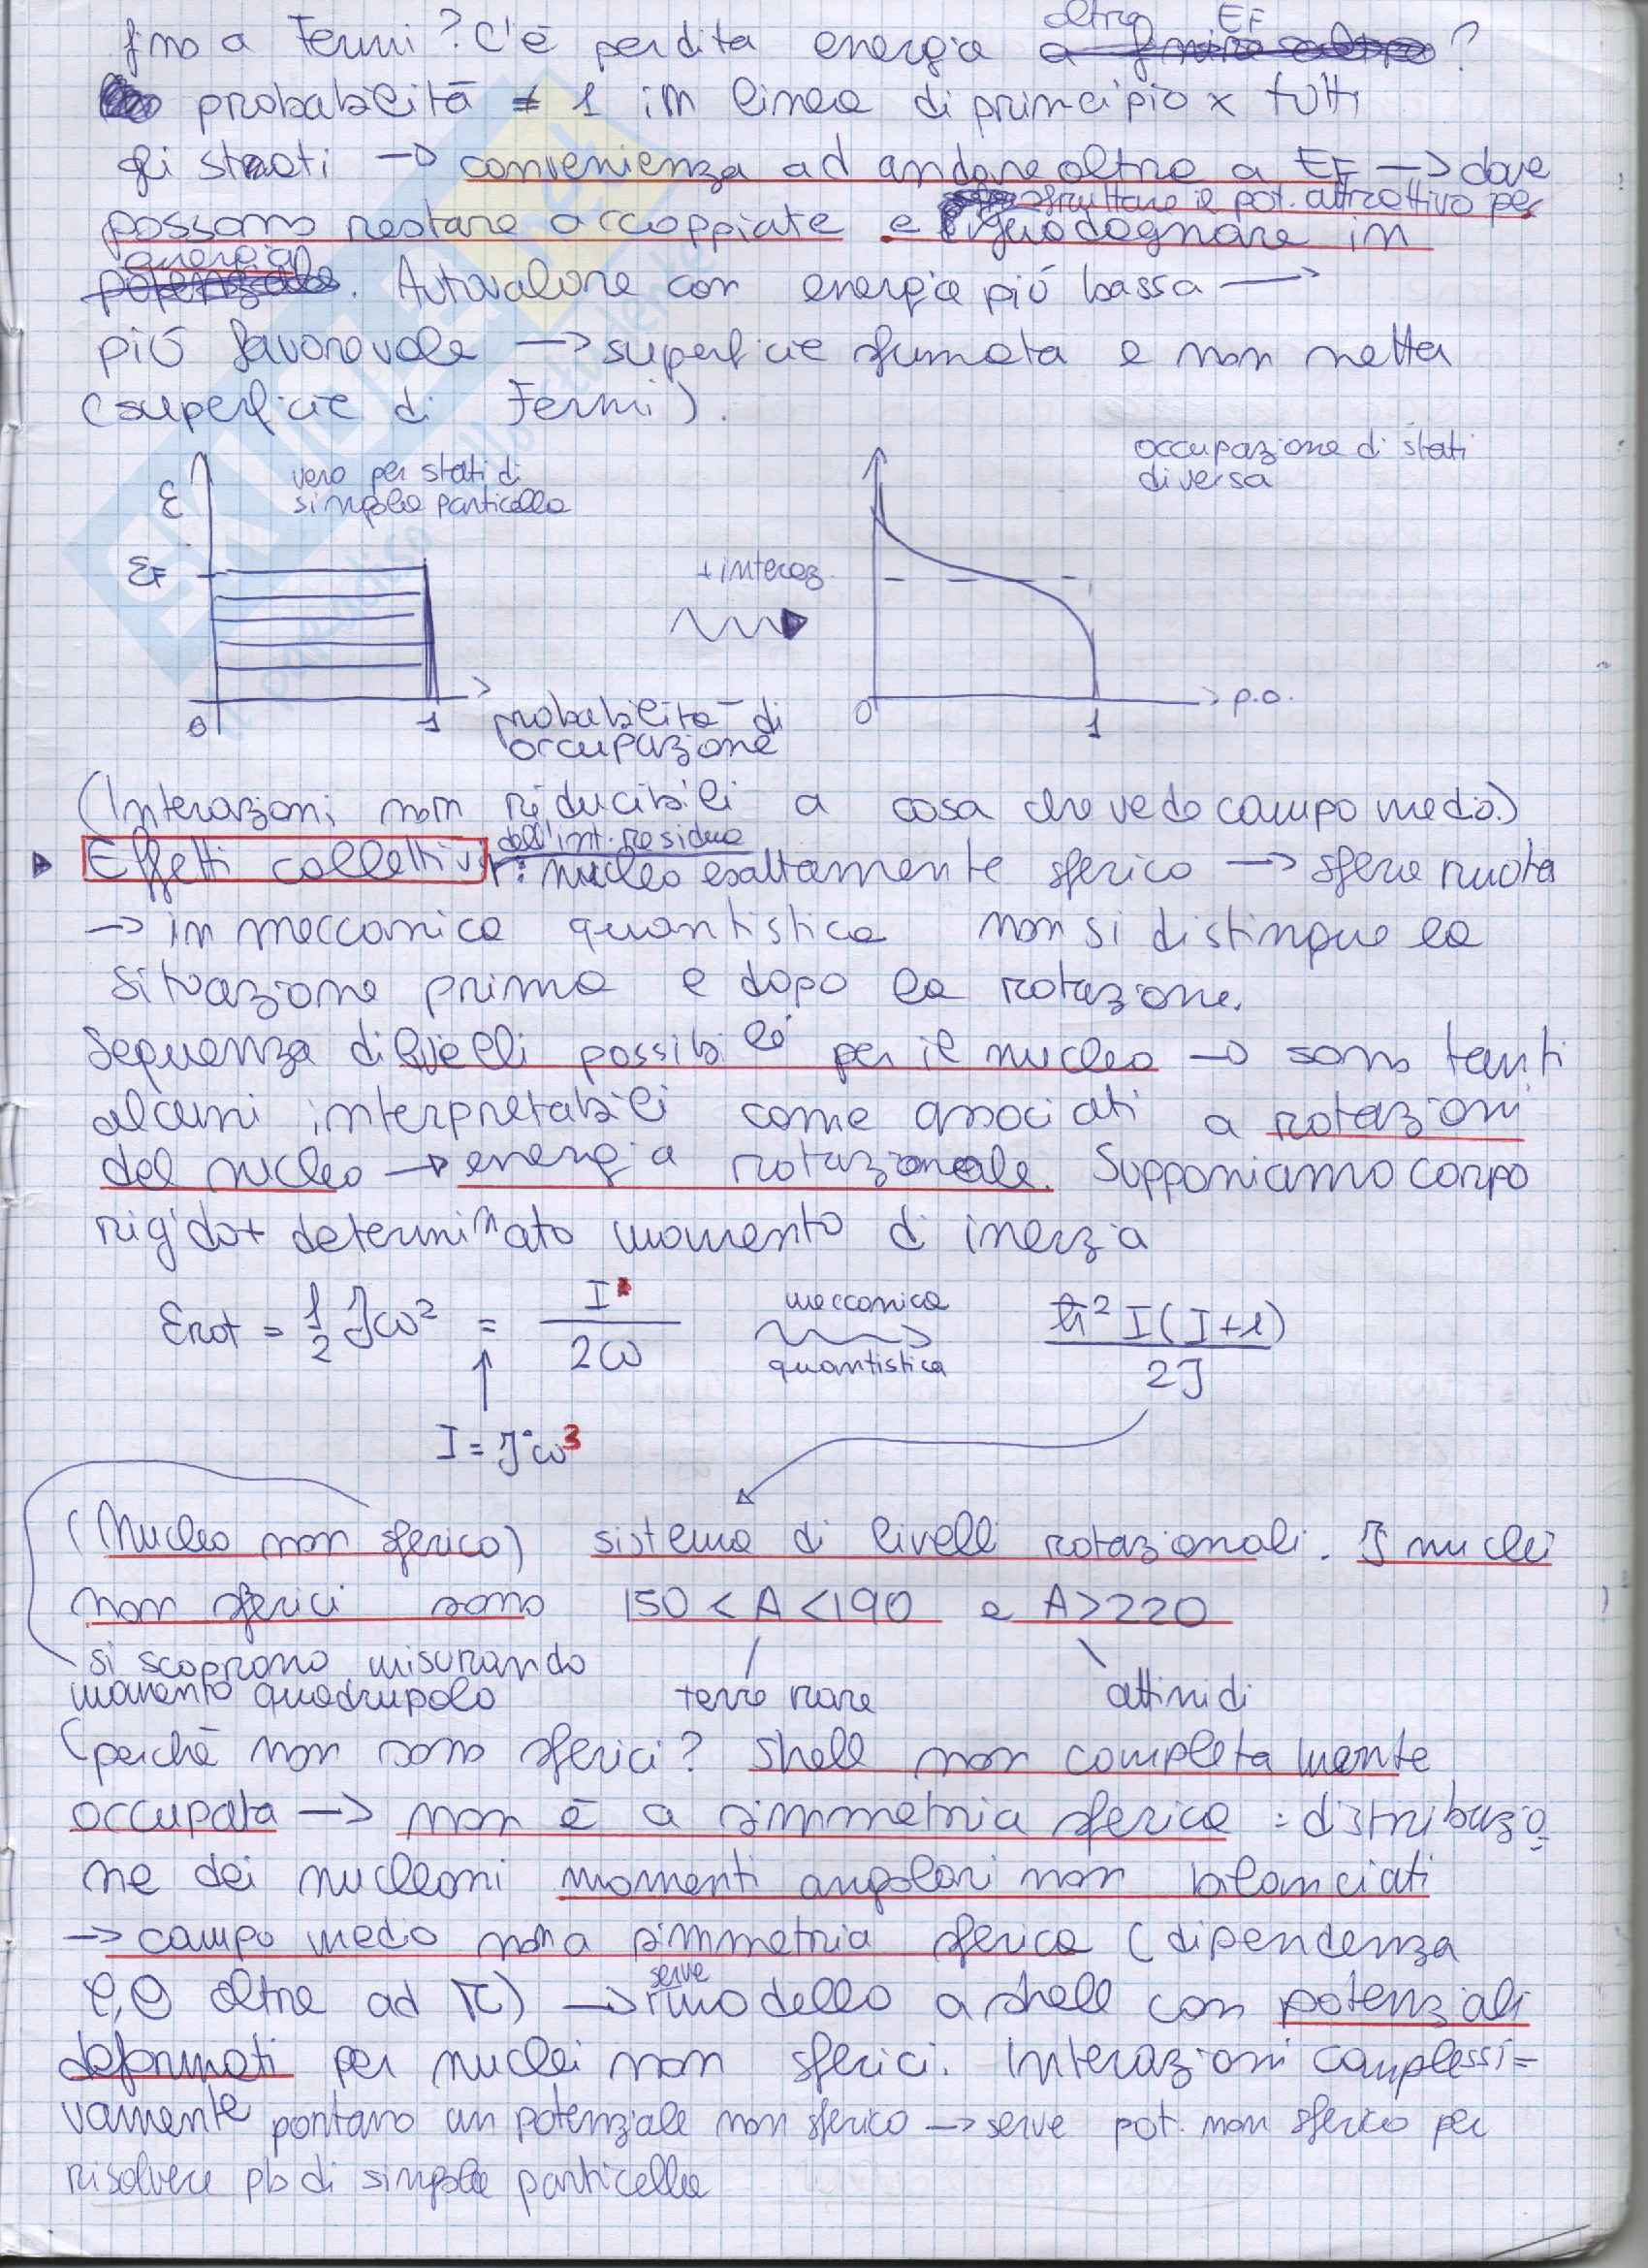 fino a Fermi? C'è perdita energia oltre EF ?
probabilità ≠ 1 in linea di principio x tutti
gli stati → convenienza ad andare oltre a EF → dove
possono restare accoppiate e sfruttare il pot. attrattivo per guadagnare in
energia. Autovalore con energia più bassa →
più favorevole → superficie sfumata e non netta
(superficie di Fermi).
occupazione di stati
diversa
vero per stati di
singola particella
ε
εF
+ interaz.
0
1
probabilità di
occupazione
0
1
p.o.
(Interazioni non riducibili a cosa che vedo campo medio.)
Effetti collettivi dell'int. residua: nucleo esattamente sferico → sfera ruota
→ in meccanica quantistica non si distingue la
situazione prima e dopo la rotazione.
Sequenza di livelli possibili per il nucleo → sono tanti
alcuni interpretabili come associati a rotazioni
del nucleo → energia rotazionale. Supponiamo corpo
rigido + determinato momento di inerzia
Erot = 1/2 Jω² = I²/2ω meccanica quantistica ħ² I(I+1)/2J
I = J·ω³
(Nucleo non sferico) sistema di livelli rotazionali. I nuclei
non sferici sono 150 < A < 190 e A > 220
si scoprono misurando
momento quadrupolo
terre rare
attinidi
(perchè non sono sferici? Shell non completamente
occupata → non è a simmetria sferica : distribuzio
ne dei nucleoni momenti angolari non bilanciati
→ campo medio non a simmetria sferica (dipendenza
φ, θ oltre ad r) → serve modello a shell con potenziali
deformati per nuclei non sferici. Interazioni complessi=
vamente portano un potenziale non sferico → serve pot. non sferico per
risolvere pb di singola particella